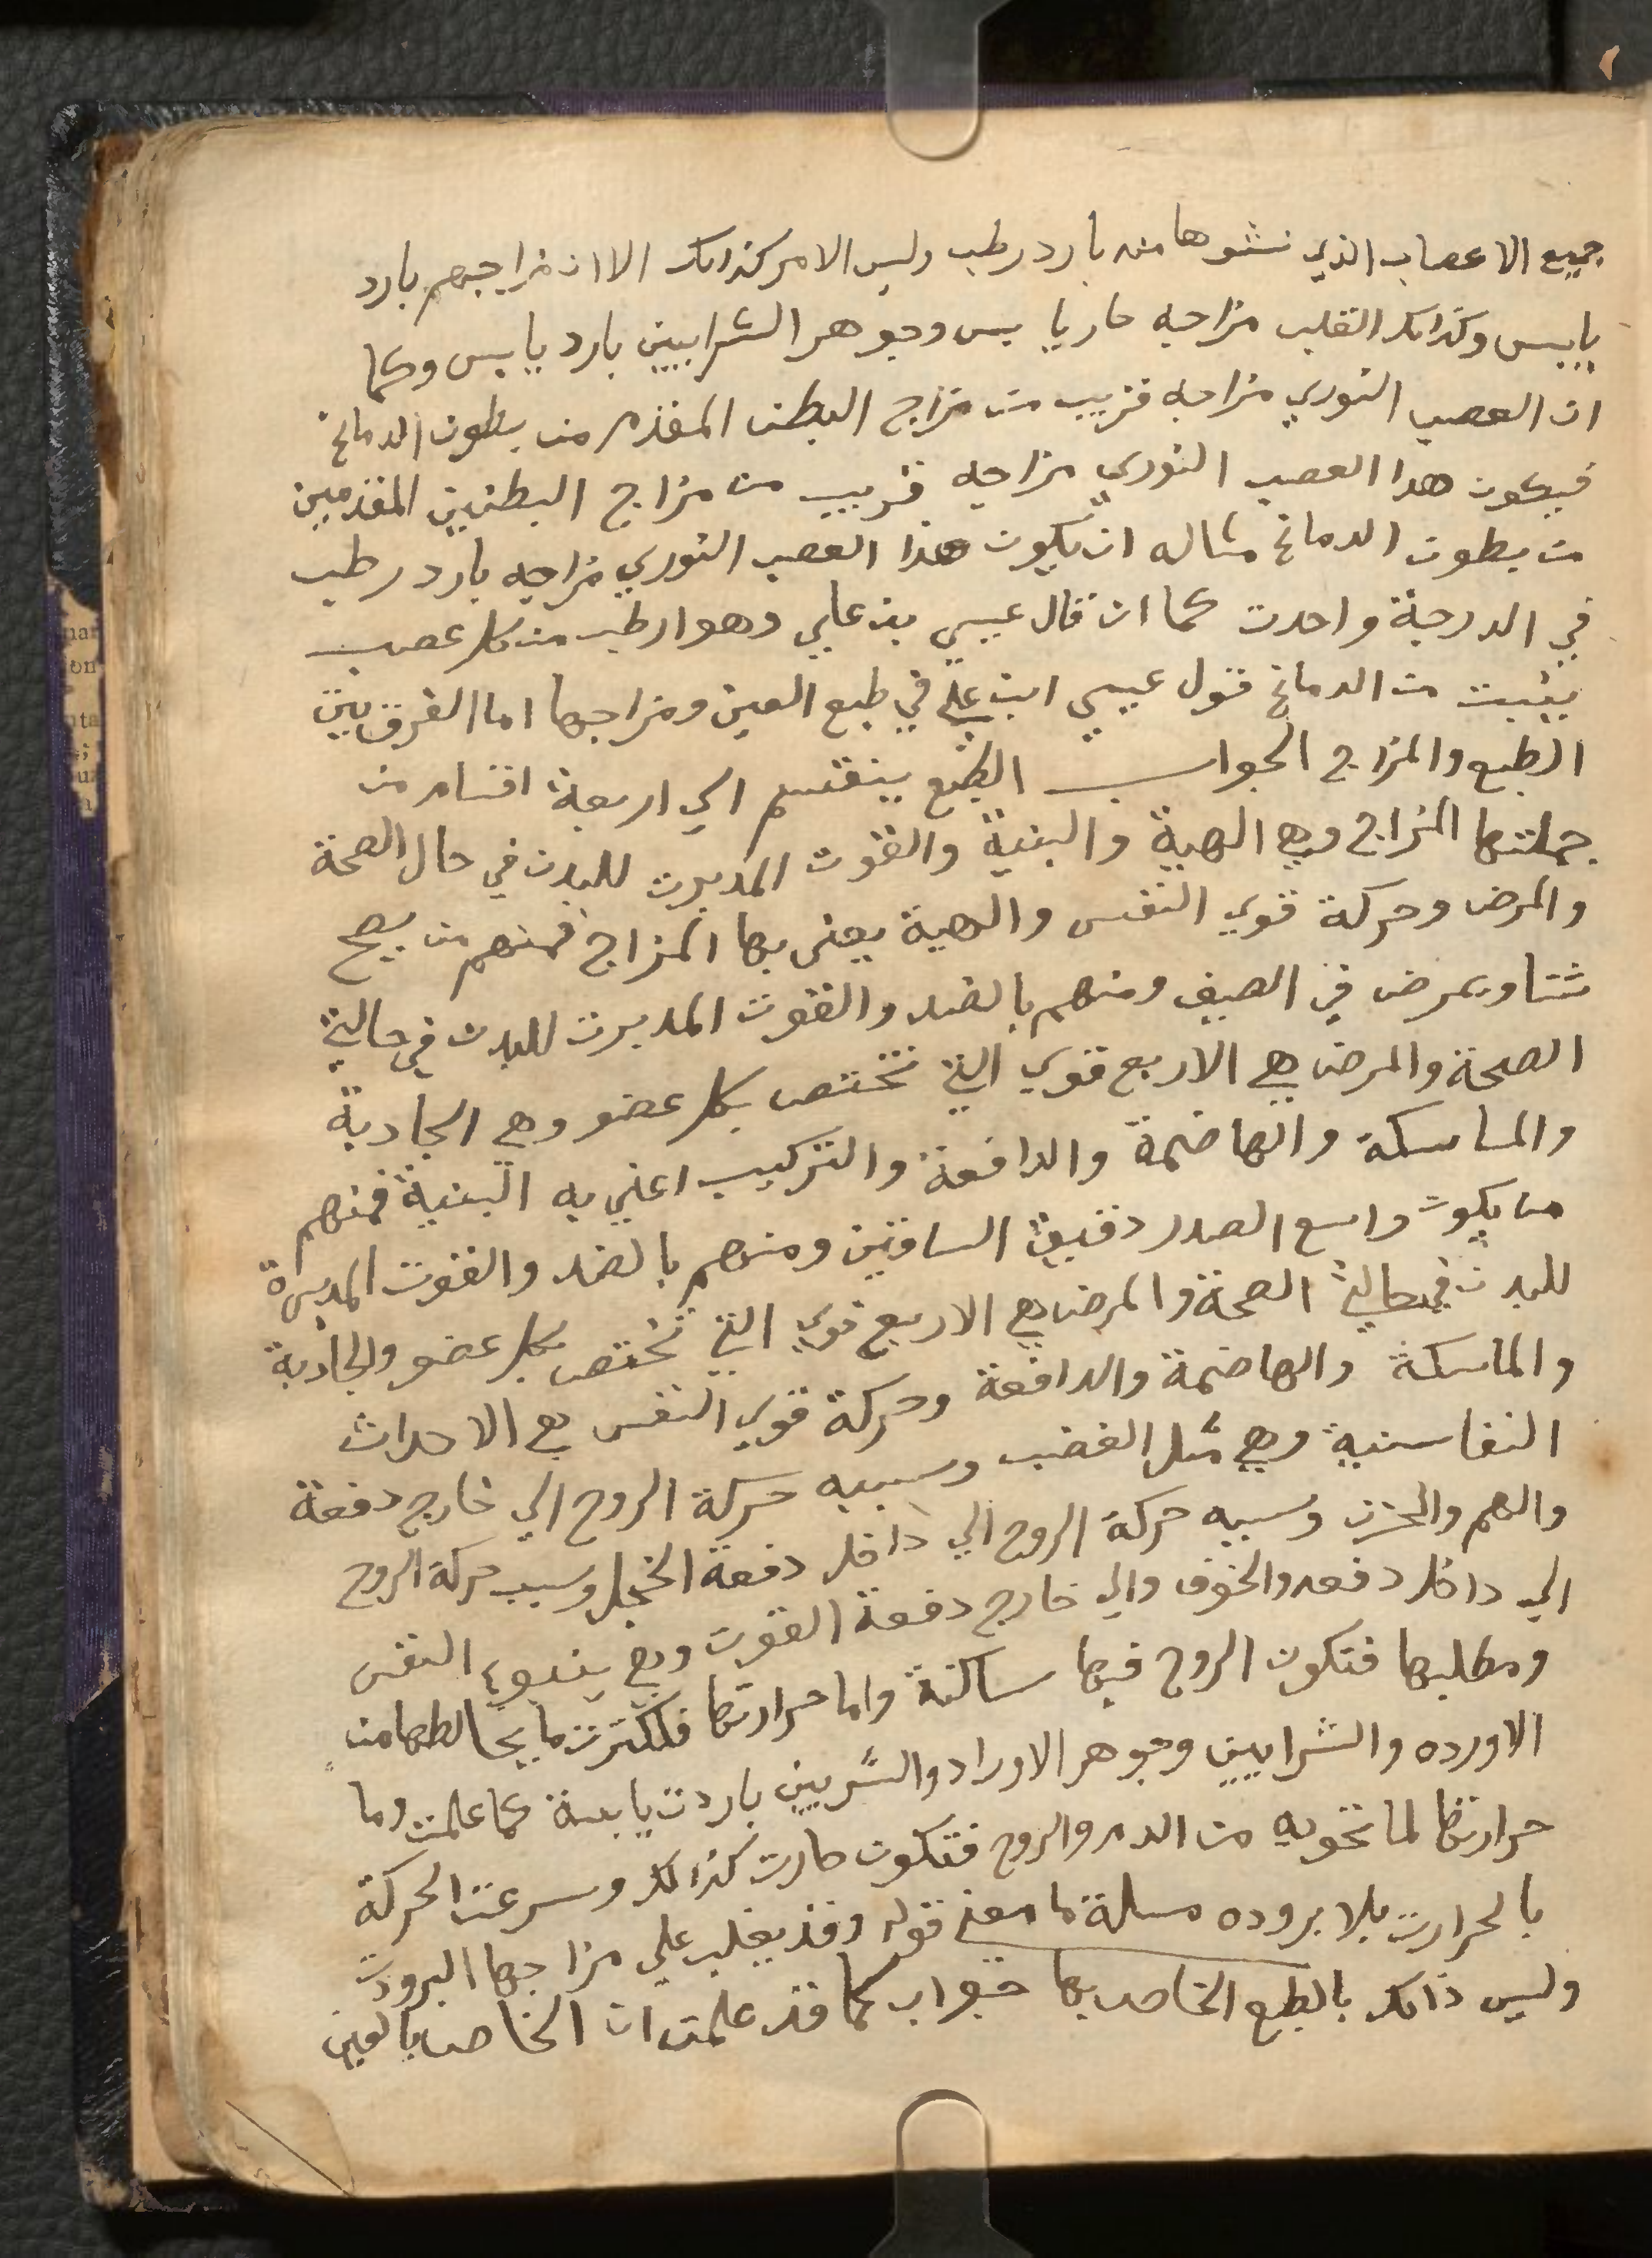 جميع الاعصاب الذي نشوها منه بارد رطب وليس الامر كذالك الا ان مزاجهم بارد
يابس وكذالك القلب مزاجه حار يابس وجوهر الشرايين بارد يابس وكما
ان العصب النوري مزاجه قريب من مزاج البطن المقدم من بطون الدماغ
فيكون هدا العصب النوري مزاجه قريب من مزاج البطنين المقدمين
من بطون الدماغ مثاله ان يكون هذا العصب النوري مزاجه بارد رطب
في الدرجة واحدت كما ان قال عيسي بن علي وهو ارطب من كل عصب
ينبت من الدماغ قول عيسي ابن علي في طبع العين ومزاجها اما الفرق بين
الطبع والمزاج الجواب الطبع ينقسم الي اربعة اقسام من
جملتها المزاج وهي الهية والبنية والقوت المدبرت للبدن في حال الصحة
والمرض وحركة قوي النفس والهية يعني بها المزاج فمنهم من يصح
شتا ويمرض في الصيف ومنهم بالضد والقوت المدبرت للبدن في حالتي
الصحة والمرض هي الاربع قوي التي تختص بكل عضو وهي الجادبة
والماسكة والهاضمة والدافعة والتركيب اعني به البنية فمنهم
من يكون واسع الصدر دقيق الساقين ومنهم بالضد والقوت المدبرة
للبدن في حالتي الصحة والمرض هي الاربع قوي التي تختص بكل عضو والجاذبة
والماسكة والهاضمة والدافعة وحركة قوي النفس هي الاحداث
النفاسنية وهي مثل الغضب وسببه حركة الروح الي خارج دفعة
والهم والحزن وسببه حركة الروح الي داخل دفعة الخجل وسبب حركة الروح
الي داخل دفعه والخوف والي خارج دفعة القوت وهي ينبوع النفس
ومطلبها فتكون الروح فيها ساكنة واما حرارتها فلكثرت ما يخالطها من
الاورده والشرايين وجوهر الاوراد والشريين باردت يابسة كما علمت وما
حرارتها لما تحويه من الدم والروح فتكون حارت كذالك وسرعت الحركة
بالحرارت بلا بروده مسلة ما معني قوله وقد يغلب علي مزاجها البرودت
وليس ذالك بالطبع الخاص بها جواب كما قد علمت ان الخاص بالعين